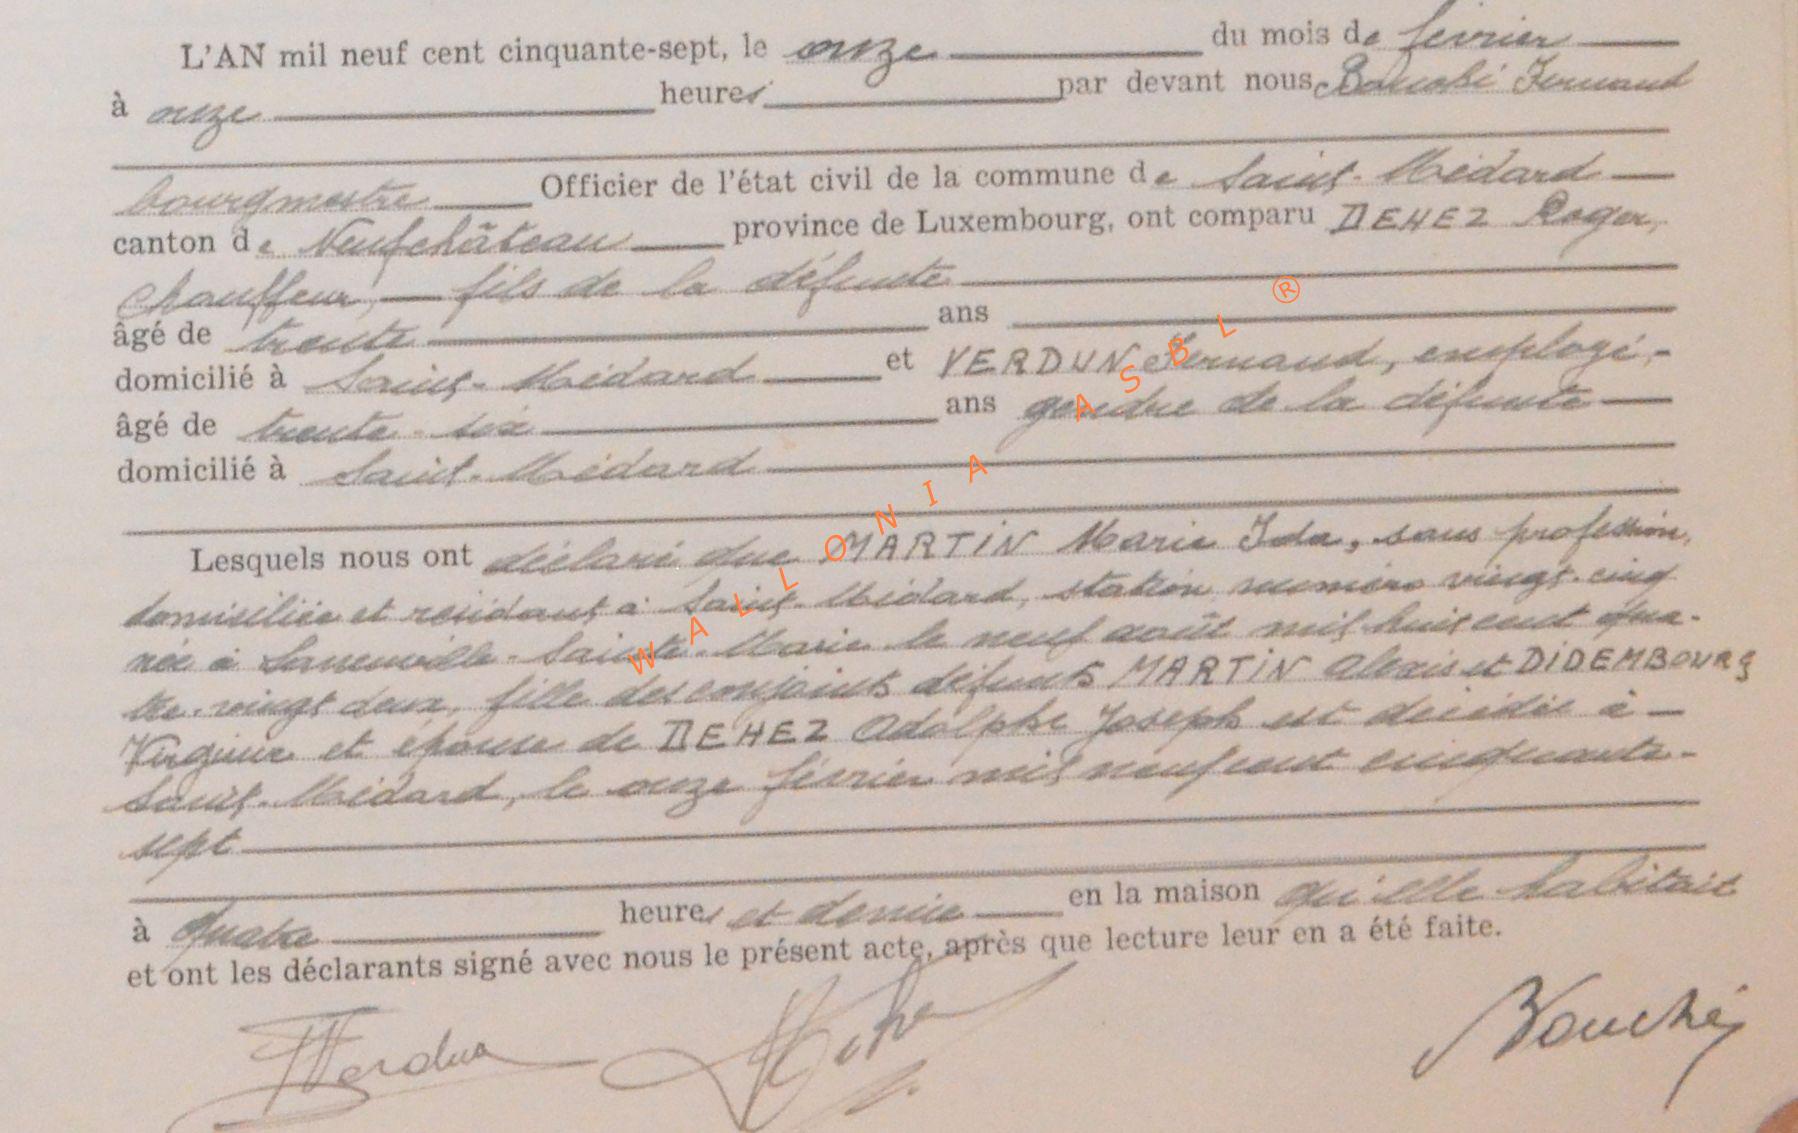 L'AN mil neuf cent cinquante-sept, le onze du mois de février
à onze heures par devant nous Bouché Fernand
bourgmestre Officier de l'état civil de la commune de Saint-Médard
canton de Neufchâteau province de Luxembourg, ont comparu DEHEZ Roger,
chauffeur, fils de la défunte
âgé de trente ans
domicilié à Saint-Médard et VERDUN Fernand, employé,
âgé de trente-six ans gendre de la défunte
domicilié à Saint-Médard
Lesquels nous ont déclaré que MARTIN Marie Ida, sans profession,
domiciliée et résidant à Saint-Médard, station numéro vingt-cinq
née à Laneuville-Sainte-Marie le neuf août mil huit cent qua-
tre-vingt deux, fille des conjoints défunts MARTIN Alexis et DIDEMBOURG
Virginie et épouse de DEHEZ Adolphe Joseph est décédée à
Saint-Médard, le onze février mil neuf cent cinquante-
sept
à quatre heures et demie en la maison qu'elle habitait
et ont les déclarants signé avec nous le présent acte, après que lecture leur en a été faite.
FVerdun
Bouché
WALLONIA ASBL ®